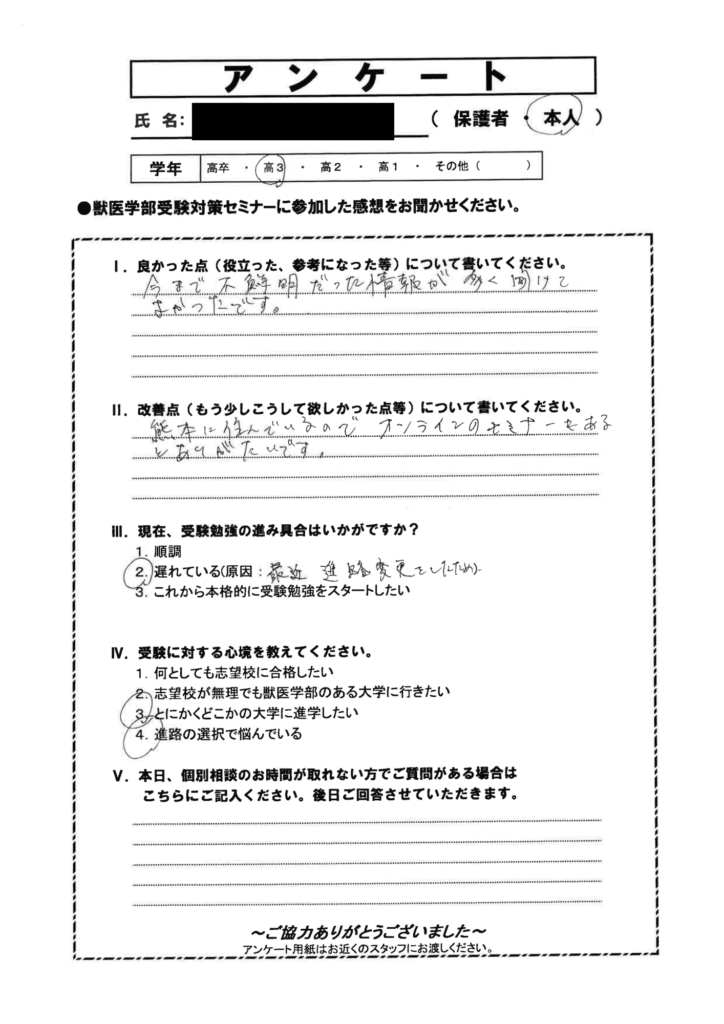 アンケート
氏 名: ( 保護者 ・ 本人 )
学年 高卒 ・ 高3 ・ 高2 ・ 高1 ・ その他 ( )
●獣医学部受験対策セミナーに参加した感想をお聞かせください。
Ⅰ. 良かった点(役立った、参考になった等)について書いてください。
今まで不鮮明だった情報が多く聞けて
よかったです。
Ⅱ. 改善点(もう少しこうして欲しかった点等)について書いてください。
熊本に住んでいるので オンラインのセミナーもある
とありがたいです。
Ⅲ. 現在、受験勉強の進み具合はいかがですか?
1. 順調
2. 遅れている(原因 : 最近 進路変更をしたため)
3. これから本格的に受験勉強をスタートしたい
Ⅳ. 受験に対する心境を教えてください。
1. 何としても志望校に合格したい
2. 志望校が無理でも獣医学部のある大学に行きたい
3. とにかくどこかの大学に進学したい
4. 進路の選択で悩んでいる
Ⅴ. 本日、個別相談のお時間が取れない方でご質問がある場合は
こちらにご記入ください。後日ご回答させていただきます。
~ご協力ありがとうございました~
アンケート用紙はお近くのスタッフにお渡しください。